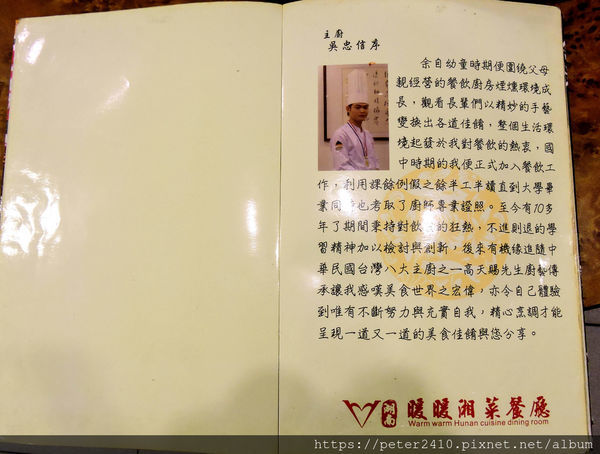 主廚
吳忠信序
余自幼童時期便圍繞父母
親經營的餐飲廚房煙燻環境成
長，觀看長輩們以精妙的手藝
變換出各道佳餚，整個生活環
境起發於我對餐飲的熱衷，國
中時期的我便正式加入餐飲工
作，利用課餘例假之餘半工半讀直到大學畢
業同 也考取了廚師專業證照。至今有10多
年了期間秉持對飲 的狂熱，不進則退的學
習精神加以檢討與創新，後來有機緣進隨中
華民國台灣八大主廚之一高天賜先生廚 傳
承讓我感嘆美食世界之宏偉，亦令自己體驗
到唯有不斷努力與充實自我，精心烹調才能
呈現一道又一道的美食佳餚與您分享。
湖南 暖暖湘菜餐廳
Warm warm Hunan cuisine dining room
https://peter2410.pixnet.net/album